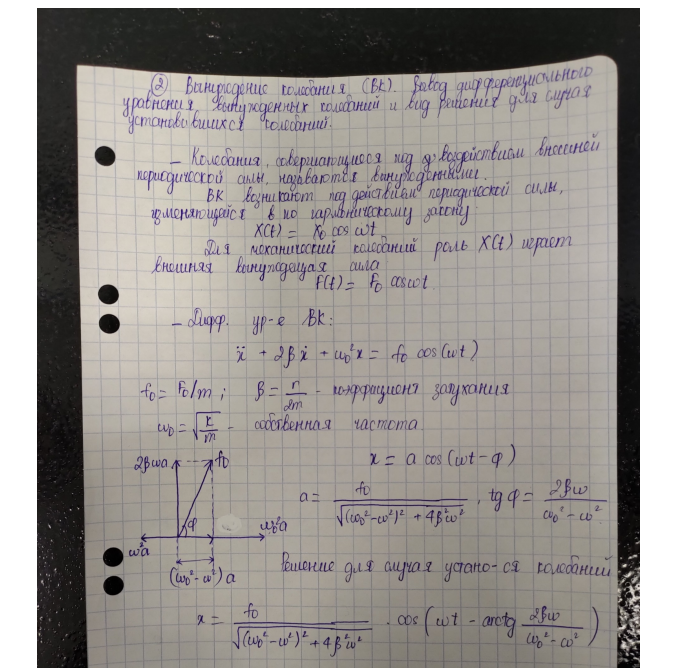 ② Вынужденные колебания (ВК). Вывод дифференциального
уравнения вынужденных колебаний и вид решения для случая
установившихся колебаний.
– Колебания, совершающиеся под воздействием внешней
периодической силы, называются вынужденными.
ВК возникают под действием периодической силы,
изменяющейся по гармоническому закону:
X(t) = X₀ cos ωt
Для механический колебаний роль X(t) играет
внешняя вынуждающая сила
F(t) = F₀ cos ωt.
– Дифф. ур-е ВК:
ẍ + 2βẋ + ω₀²x = f₀ cos(ωt)
f₀ = F₀/m; β = r/2m – коэффициент затухания
ω₀ = √(k/m) – собственная частота
x = a cos(ωt – φ)
a = f₀/√((ω₀² – ω²)² + 4β²ω²), tg φ = 2βω/(ω₀² – ω²)
2βωa f₀
φ
ω²a ω₀²a
(ω₀² – ω²)a
Решение для случая устано-ся колебаний
x = f₀/√((ω₀² – ω²)² + 4β²ω²) · cos(ωt – arctg 2βω/(ω₀² – ω²))